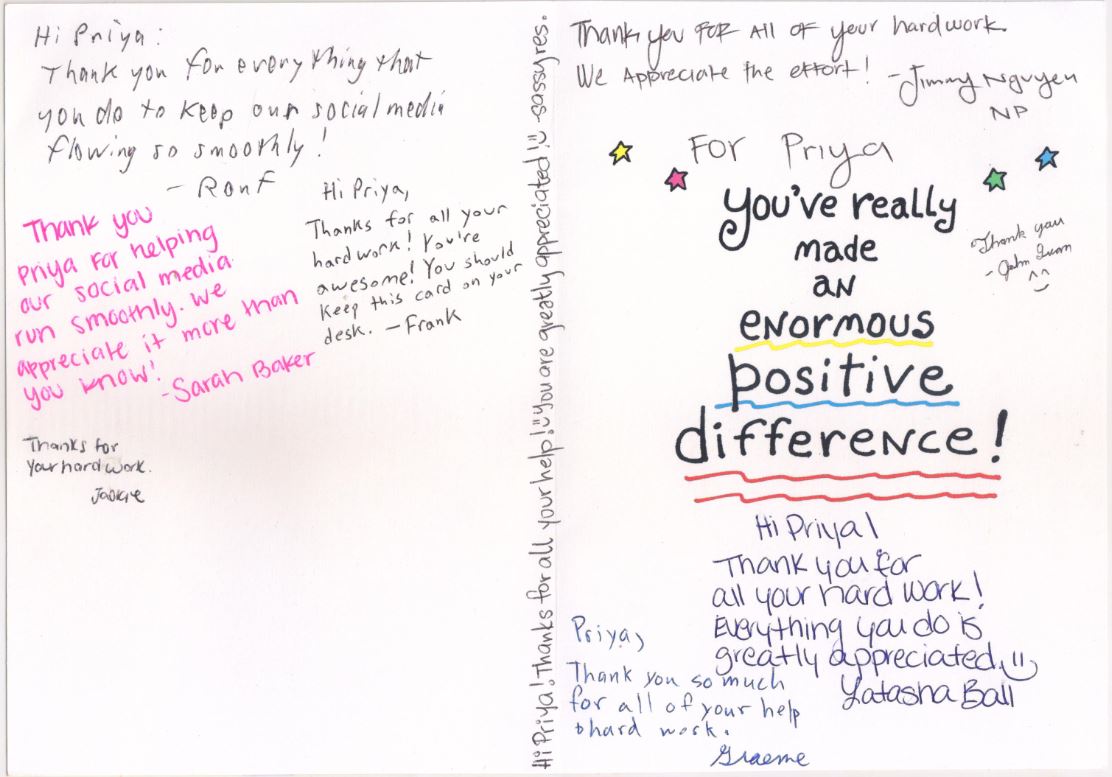 Hi Priya:
Thank you for everything that
you do to keep our social media
flowing so smoothly!
- Ron F
Thank you
Priya For helping
our social media
run smoothly. We
appreciate it more than
you know!
- Sarah Baker
Hi Priya,
Thanks for all your
hard work! You're
awesome! You should
Keep this card on your
desk. - Frank
Thanks for
your hard work.
Jackie
Hi Priya! Thanks for all your help! You are greatly appreciated! sassyres.
Thank you FOR All OF your hard work.
We Appreciate the effort! - Jimmy Nguyen
NP
For Priya
You've really
made
an
enormous
positive
difference!
Thank you
- John
Hi Priya!
Thank you for
all your hard work!
Everything you do is
greatly appreciated.
Latasha Ball
Priya,
Thank you so much
for all of your help
+ hard work.
Graeme